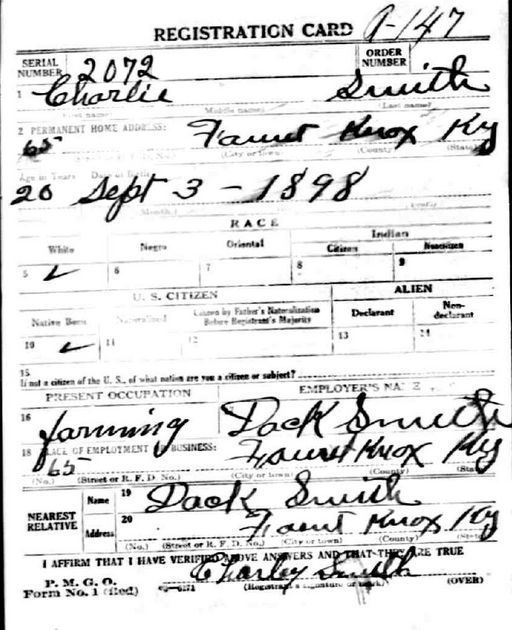 REGISTRATION CARD A-147
SERIAL NUMBER 2072 ORDER NUMBER
1 Charlie Smith
First name) (Middle name) (Last name)
2 PERMANENT HOME ADDRESS:
65 Knox Ky
(City or town) (County) (State)
Age in Years Date of Birth
20 Sept 3 - 1898
(Month.)
RACE
White Negro Oriental Indian
Citizen Noncitizen
5 ✓ 6 7 8 9
U. S. CITIZEN ALIEN
Native Born Naturalized Citizen by Father's Naturalization Before Registrant's Majority Declarant Non-declarant
10 ✓ 11 12 13 14
15
If not a citizen of the U. S., of what nation are you a citizen or subject?
PRESENT OCCUPATION EMPLOYER'S NAME
16 farming Dack Smith
18 PLACE OF EMPLOYMENT OR BUSINESS:
65 Knox Ky
(No.) (Street or R. F. D. No.) (City or town) (County) (State)
NEAREST RELATIVE
Name 19 Dack Smith
Address 20 Knox Ky
(No.) (Street or R. F. D. No.) (City or town) (County) (State)
I AFFIRM THAT I HAVE VERIFIED ABOVE ANSWERS AND THAT THEY ARE TRUE
Charley Smith
P. M. G. O.
Form No. 1 (Red) (Registrant's signature or mark) (OVER)